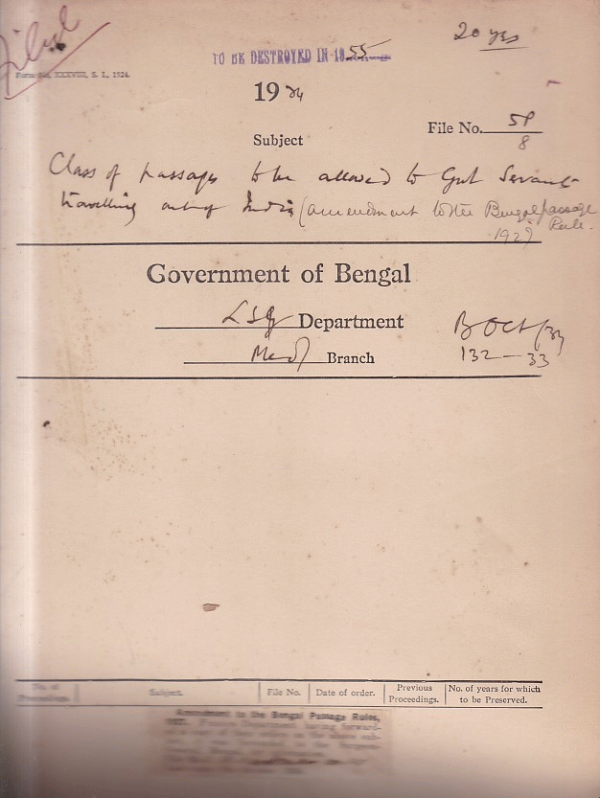 20 yrs
Filed
TO BE DESTROYED IN 1955
Form No. XXXVIII, S. I., 1924.
1934
File No. 5P
8
Subject
Class of passage to be allowed to Govt Servants
travelling out of India (amendment to the Bengal passage
Rule.
1927)
Government of Bengal
LSG Department
Medl Branch
B Oct/34
132—33
No. of Proceedings.
Subject.
File No.
Date of order.
Previous Proceedings.
No. of years for which to be Preserved.
Amendment to the Bengal Passage Rules,
1927.